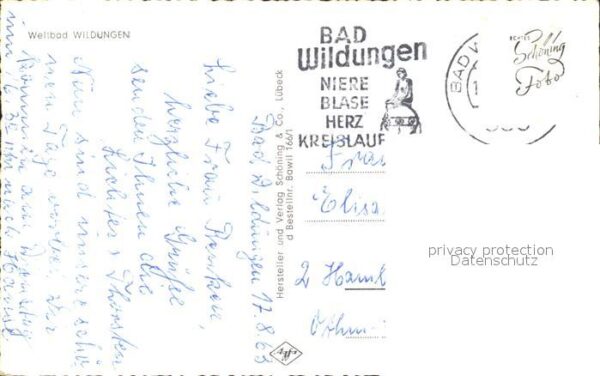 Weltbad WILDUNGEN
BAD
Wildungen
NIERE
BLASE
HERZ
KREISLAUF
BAD W
ECHTES
Schöning
Foto
Hersteller und Verlag Schöning & Co., Lübeck
d Bestellnr. Bawil 166/1
Agfa
Bad Wildungen 17.8.65
Liebe Frau
herzliche Grüße
senden Ihnen die
Thorsten
Nun sind unsere schö
nen Tage vorbei. Wir
nach Hause
Frau
Elisa
2 Hamb
Othm
privacy protection
Datenschutz